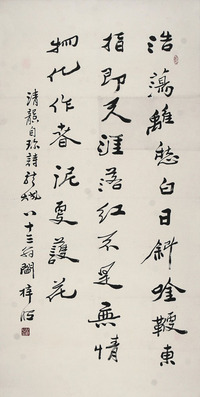 浩蕩離愁白日斜吟鞭東
指即天涯落紅不是無情
物化作春泥更護花
清龔自珍詩 八十三翁 梓